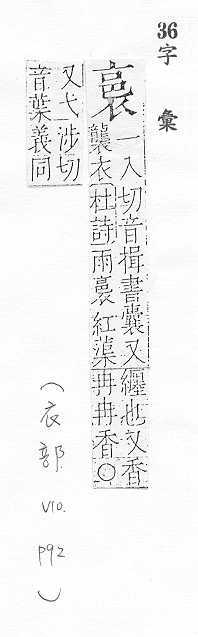 36字彙
裛
一入切音揖書囊又纏也又香
襲衣杜詩雨裛紅蕖冉冉香〇
又弋涉切
音葉義同
(衣部 V10. P92)